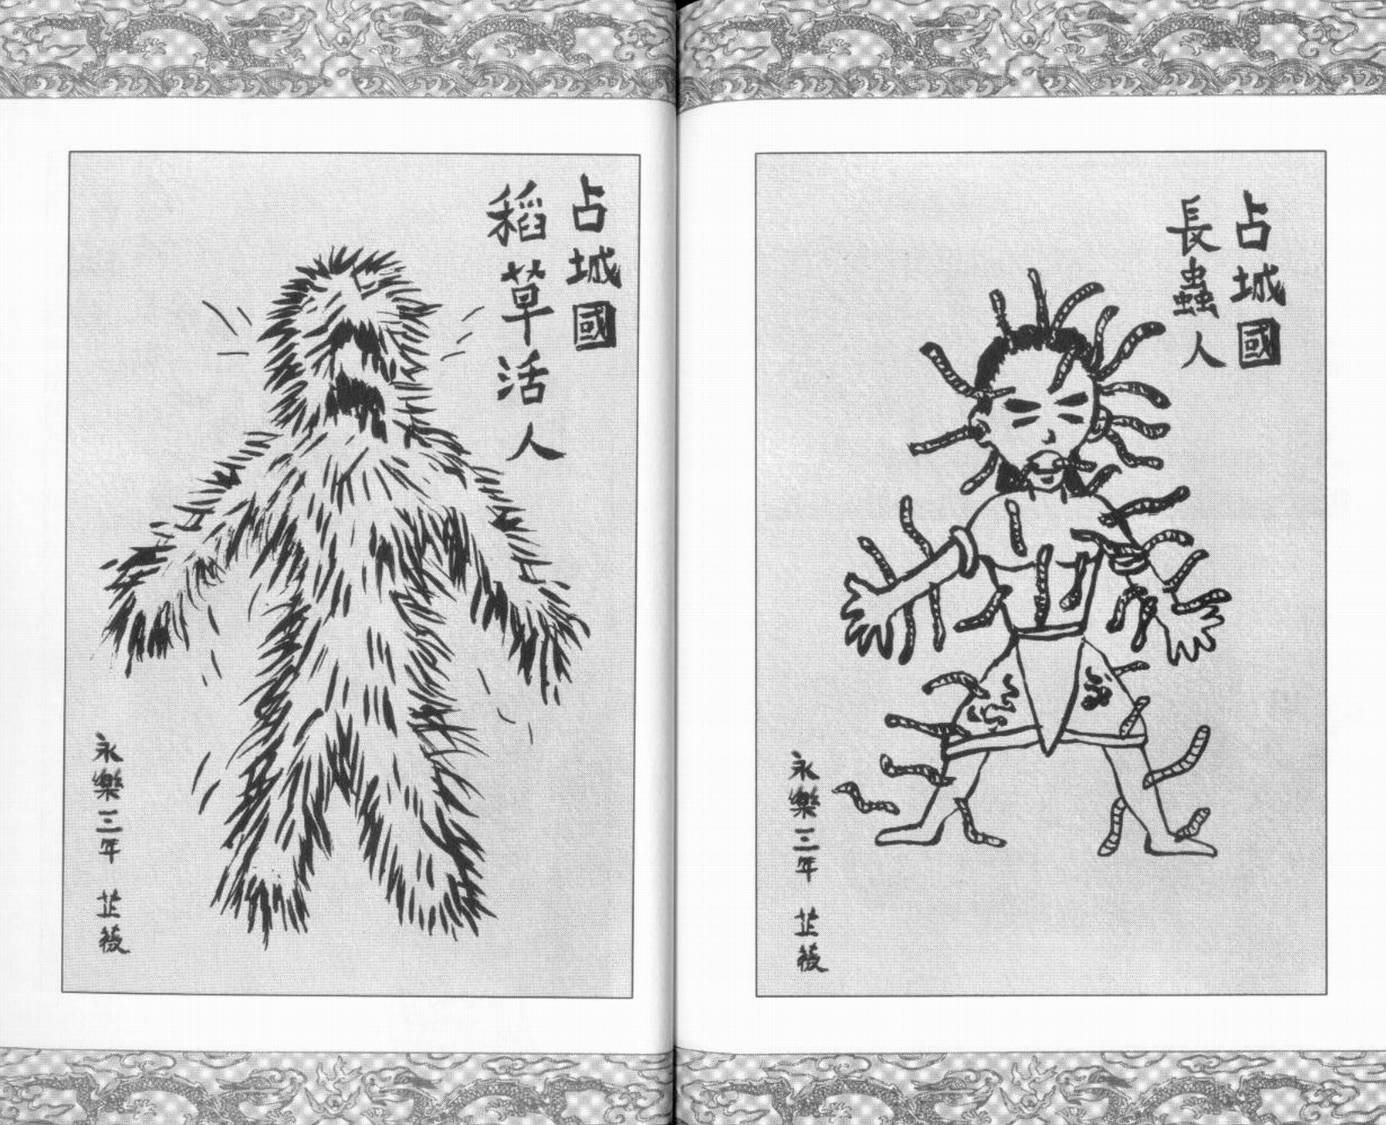 占城國
稻草活人
永樂三年 芷薇
占城國
長蟲人
永樂三年 芷薇